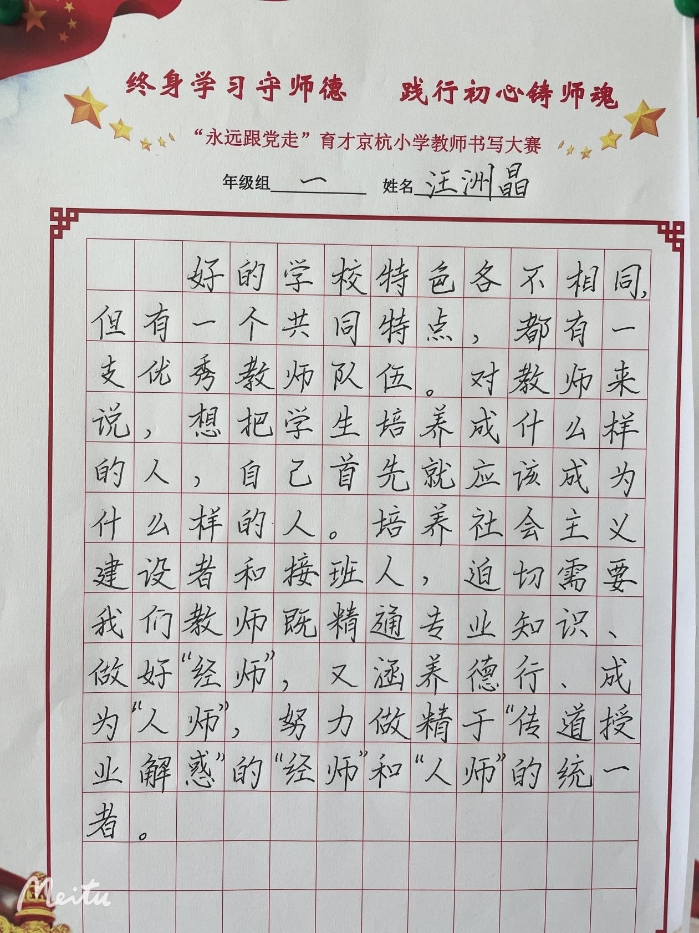 终身学习守师德 践行初心铸师魂
“永远跟党走”育才京杭小学教师书写大赛
年级组 一 姓名 汪洲晶
好的学校特色各不相同,
但有一个共同特点，都有一
支优秀教师队伍。对教师来
说，想把学生培养成什么样
的人，自己首先就应该成为
什么样的人。培养社会主义
建设者和接班人，迫切需要
我们教师既精通专业知识、
做好“经师”，又涵养德行、成
为“人师”，努力做精于“传道授
业解惑”的“经师”和“人师”的统一
者。
Meitu